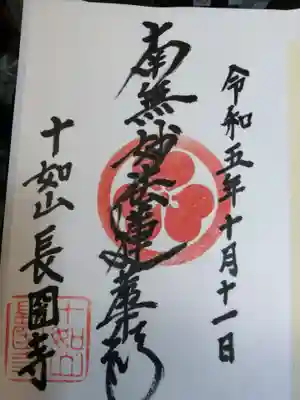 令和五年十月十一日
南無妙法蓮華経
十如山 長國寺